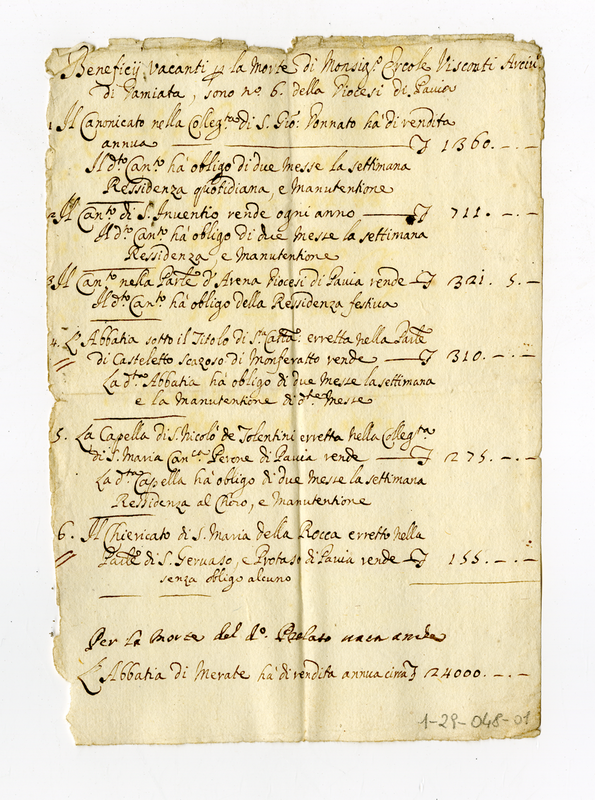 Beneficij vacanti p la Morte di Monsigr. Ercole Visconti Arciu
di Damiata, sono no. 6. della Diocesi di Pavia
1 Il Canonicato nella Collegta. di S. Gio: Donnato ha di rendita
annua 1360. - . -
Il dto. Canto. ha obligo di due Messe la settimana
Ressidenza quotidiana, e Manutentione
2. Il Canto. di S. Inventio rende ogni anno 711. - . -
Il dto. Canto. ha obligo di due messe la settimana
Ressidenza, e Manutentione
3. Il Canto. nella Parle. d'Arena Diocesi di Pavia rende 321. 5. -
Il dto. Canto. ha obligo della Ressidenza festiva
4. L'Abbatia sotto il Titolo di Sta. Catta. erretta nella Parle.
di Casteletto Scazoso di Monferatto rende 310. - . -
La dta. Abbatia ha obligo di due Messe la settimana
e la manutentione di dte. Messe
5. La Capella di S. Nicolò de Tolentini erretta nella Collegta.
di S. Maria Perone di Pavia rende 275. - . -
La dta. Capella ha obligo di due Messe la settimana
Ressidenza al Choro, e Manutentione
6. Il Chiericato di S. Maria della Rocca erretto nella
Parle. di S. Gervaso, e Protaso di Pavia rende 155. - . -
senza obligo alcuno
Per la Morte del do. Prelato vaca anche
L'Abbatia di Merate ha di rendita annua circa 24000. - . -
1-29-048-01